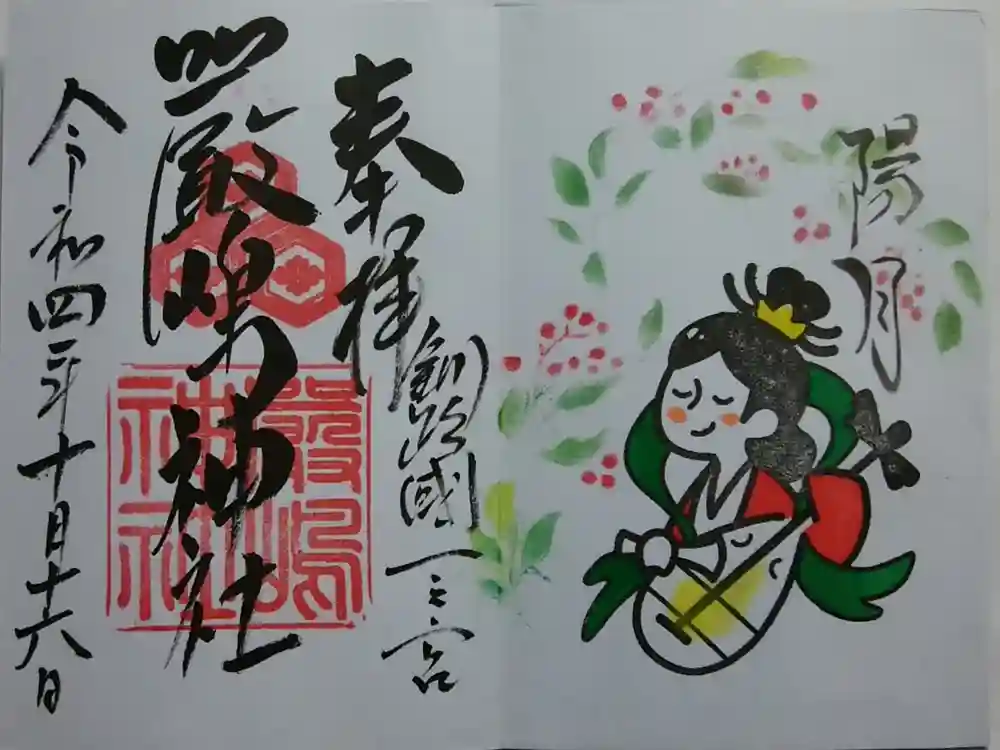 陽月
奉拝
釧路國一之宮
嚴嶋神社
嚴嶋神社
令和四年十月十六日